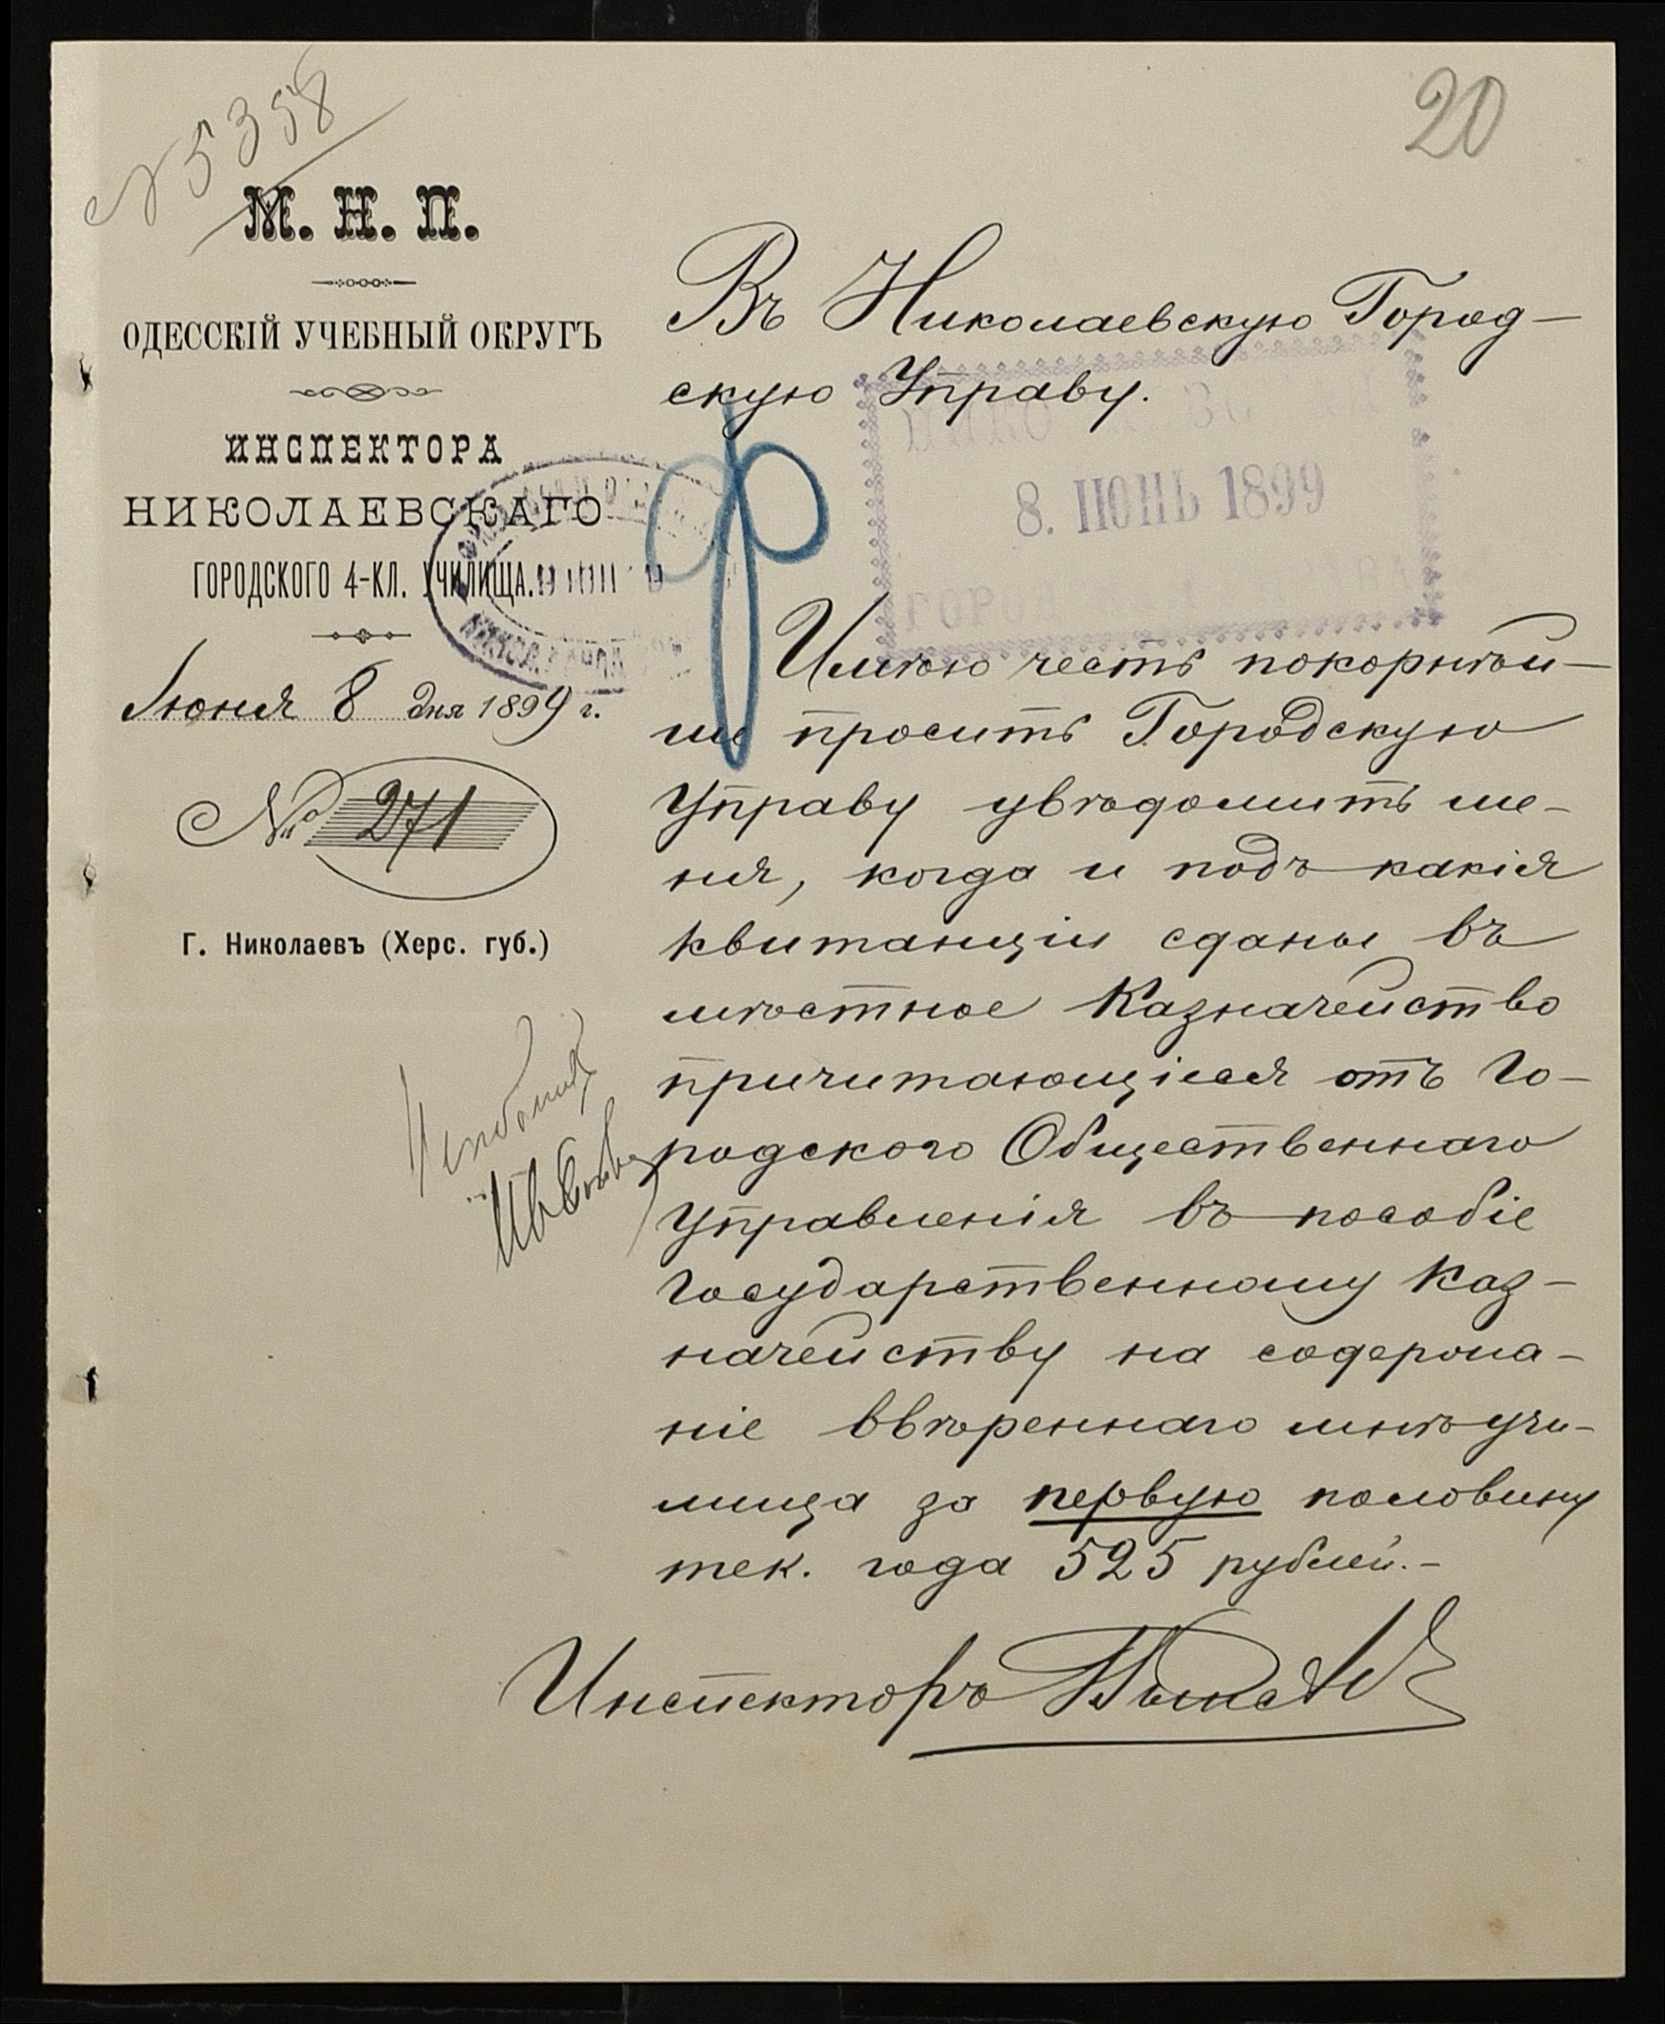 № 5358
20
М. Н. П.
ОДЕССКІЙ УЧЕБНЫЙ ОКРУГЪ
ИНСПЕКТОРА
НИКОЛАЕВСКАГО
ГОРОДСКОГО 4-КЛ. УЧИЛИЩА.
Іюня 8 дня 1899 г.
№ 271
Г. Николаевъ (Херс. губ.)
Въ Николаевскую Город-
скую Управу.
8. ІЮНЬ 1899
ГОРОД
Имѣю честь покорнѣй-
ше просить Городскую
Управу увѣдомить ме-
ня, когда и подъ какія
квитанціи сданы въ
мѣстное Казначейство
причитающіеся отъ Го-
родского Общественнаго
Управленія въ пособіе
Государственному Каз-
начейству на содержа-
ніе ввѣреннаго мнѣ учи-
лища за первую половину
тек. года 525 рублей.-
Инспекторъ